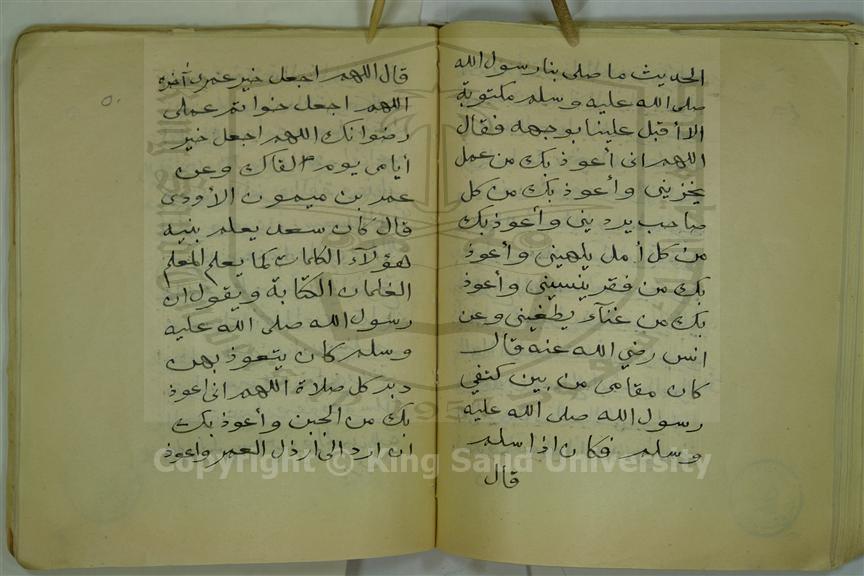 الحديث ما صلى بنا رسول الله
صلى الله عليه وسلم مكتوبة
الا أقبل علينا بوجهه فقال
اللهم انى أعوذ بك من عمل
يخزيني وأعوذ بك من كل
صاحب يرديني وأعوذ بك
من كل أمل يلهيني وأعوذ
بك من فقر ينسيني وأعوذ
بك من غنآء يطغيني وعن
انس رضي الله عنه قال
كان مقامى من بين كتفي
رسول الله صلى الله عليه
وسلم فكان اذا سلم
قال
قال اللهم اجعل خير عمرى أخره
اللهم اجعل خواتم عملى
رضوانك اللهم اجعل خير
أيامى يوم القاك وعن
عمر بن ميمون الأودى
قال كان سعد يعلم بنيه
هؤلآء الكلمات كما يعلم المعلم
الغلمان الكتابة ويقول ان
رسول الله صلى الله عليه
وسلم كان يتعوذ بهن
دبر كل صلاة اللهم انى اعوذ
بك من الجبن وأعوذ بك
ان ارد الى ارذل العمر واعوذ
Copyright © King Saud University
1957